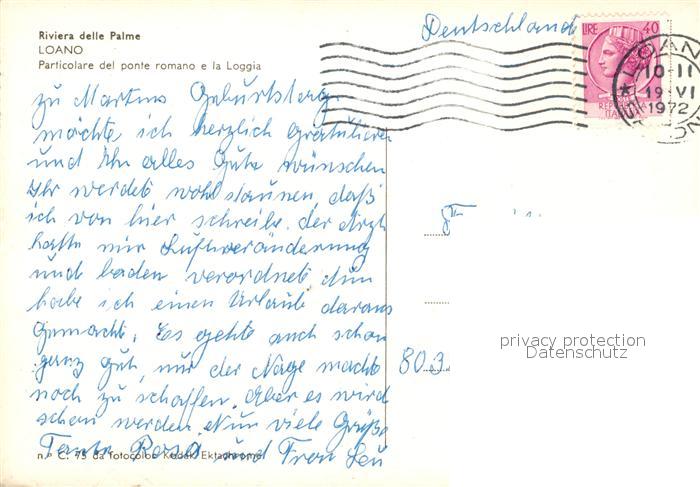 Riviera delle Palme
LOANO
Particolare del ponte romano e la Loggia
Deutschland
LIRE 40
LOANO
10-11
19 VI
1972
zu Martins Geburtstag
möchte ich herzlich gratulieren
und Ihm alles Gute wünschen
Ihr werdet wohl staunen, daß
ich von hier schreibe. Der Arzt
hatte mir Luftveränderung
und baden verordnet Nun
habe ich einen Urlaub daraus
gemacht. Es geht auch schon
ganz gut, nur der Nage macht
noch zu schaffen. Aber es wird
schon werden. Nun viele Grüße
Tante Rosa und Frau Leu
803
privacy protection
Datenschutz
n.º C. 75 da fotocolor Kodak Ektachrome